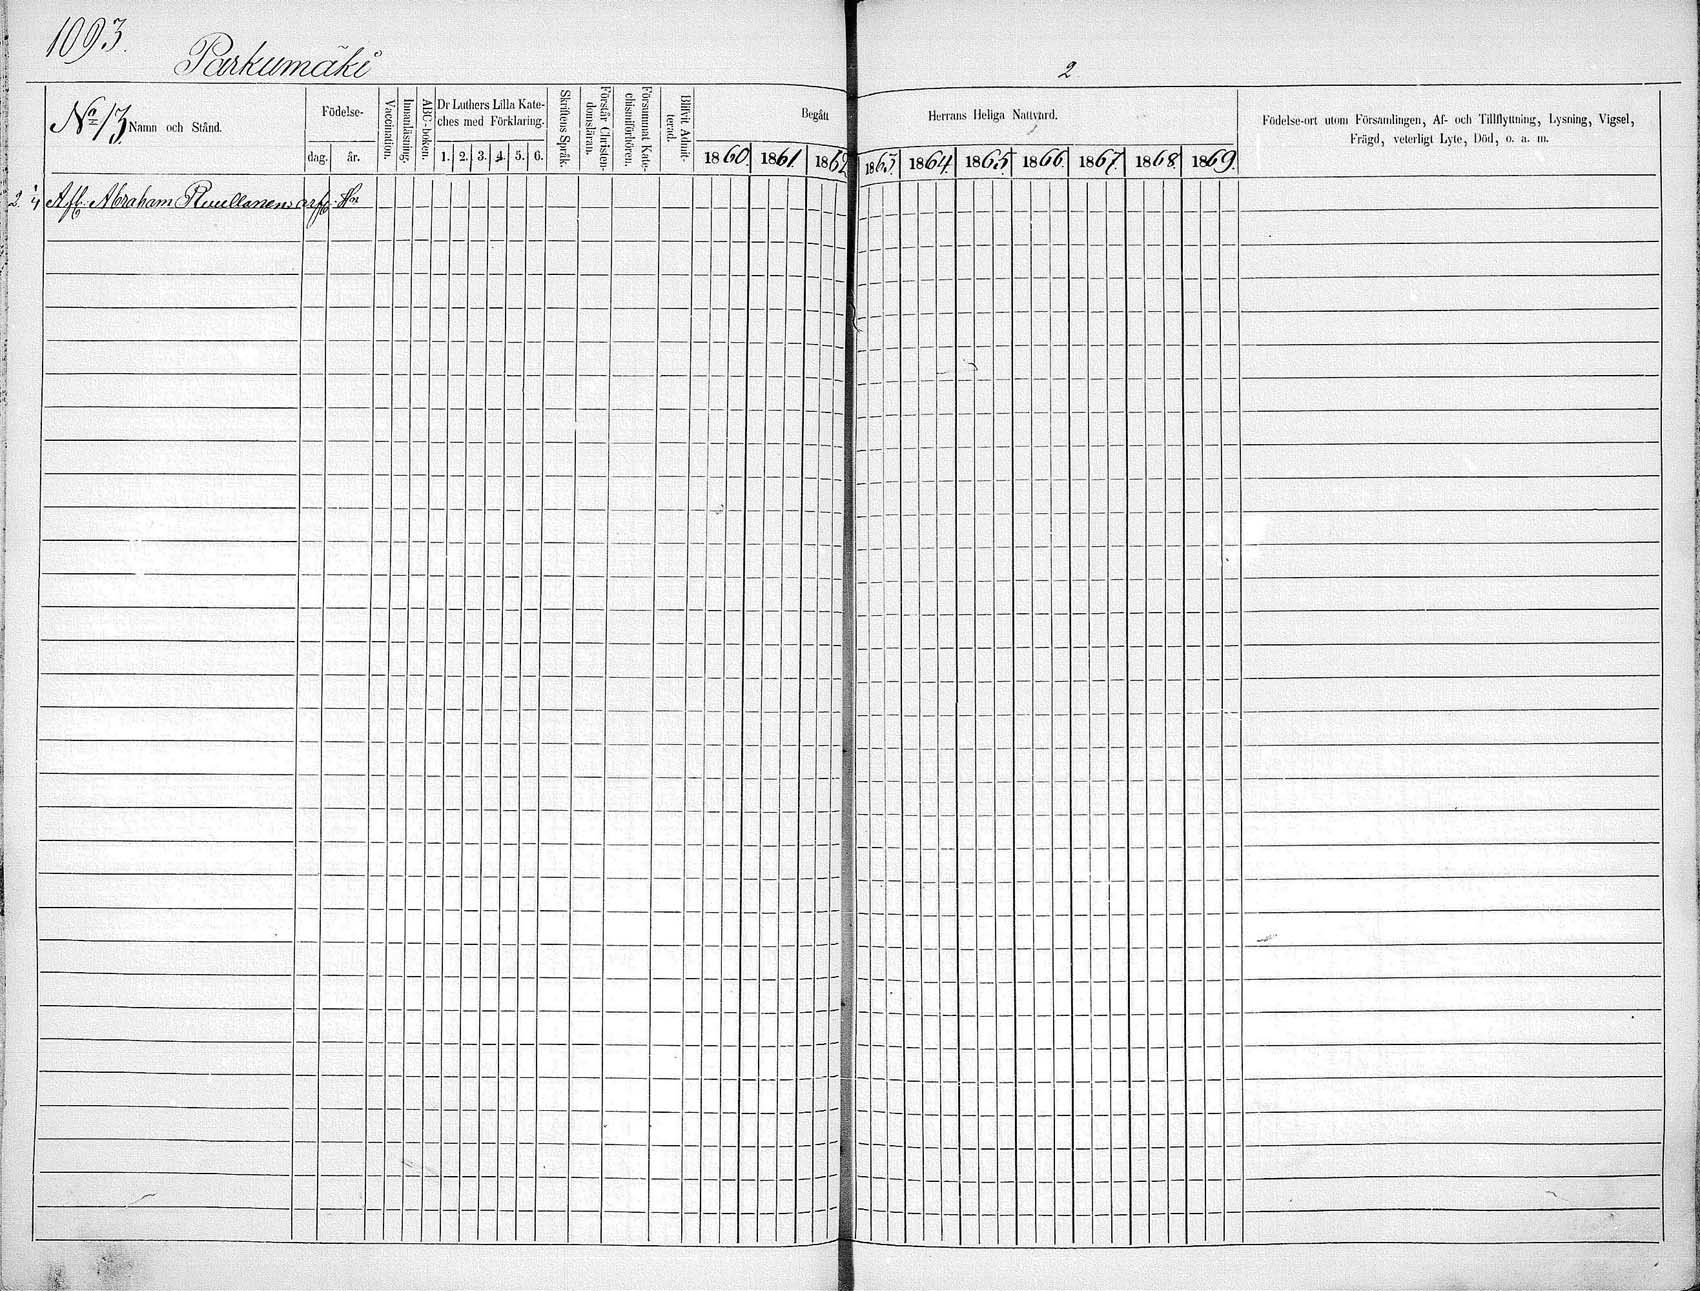 1093.
Parkumäki
2
No 13
Namn och Stånd.
Födelse-
dag. år.
Vaccination.
Innanläsning.
ABC-boken.
Dr Luthers Lilla Kate-
ches med Förklaring.
1. 2. 3. 4. 5. 6.
Skriftens Språk.
Förstår Christen-
domsläran.
Försummat Kate-
chismiförhören.
Blifvit Admit-
terad.
Begått Herrans Heliga Nattvard.
1860. 1861. 1862 1863. 1864. 1865. 1866. 1867. 1868. 1869.
Födelse-ort utom Församlingen, Af- och Tillflyttning, Lysning, Vigsel,
Frägd, veterligt Lyte, Död, o. a. m.
Afl. Abraham Ruullanens arfv.